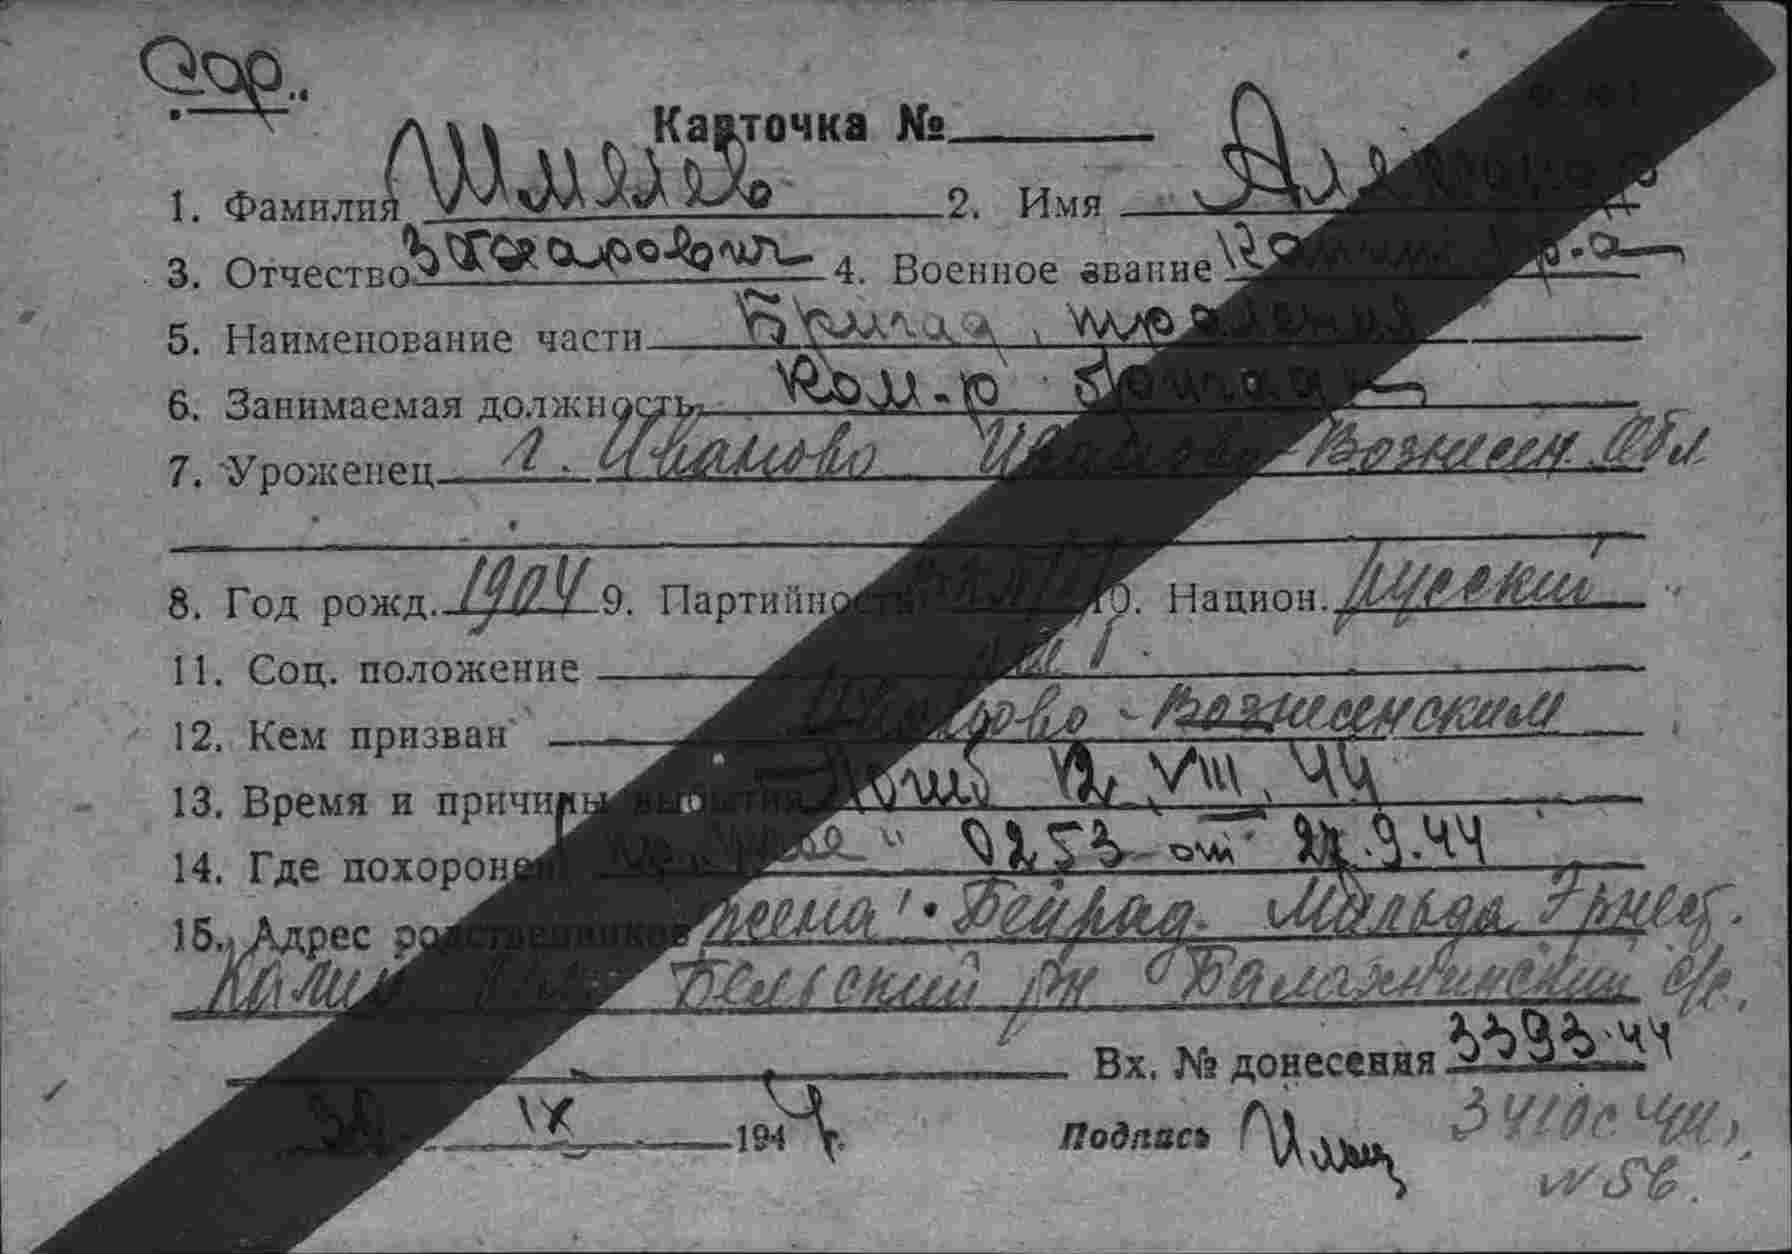 Карточка №
1. Фамилия Шмелев 2. Имя
3. Отчество 4. Военное звание
5. Наименование части Бригад. траления
6. Занимаемая должность Ком-р бригады
7. Уроженец г. Иваново Иваново-Вознесен. Обл
8. Год рожд. 1904 9. Партийность 10. Национ. русский
11. Соц. положение
12. Кем призван Иваново-Вознесенским
13. Время и причины выбытия Погиб 12.VIII.44
14. Где похоронен 0253 от 27.9.44
15. Адрес родственников жена: Бейрад. Мильда Эрнест.
Калин Бельский рн с/с.
Вх. № донесения 3393.44
30 IX 1944 г. Подпись
3410с 44г,
N 56.